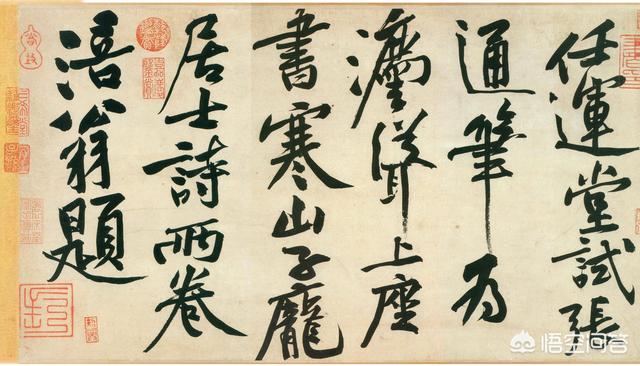 任運堂試張
通筆為
灋聳上座
書寒山子龐
居士詩兩卷
涪翁題
悟空问答